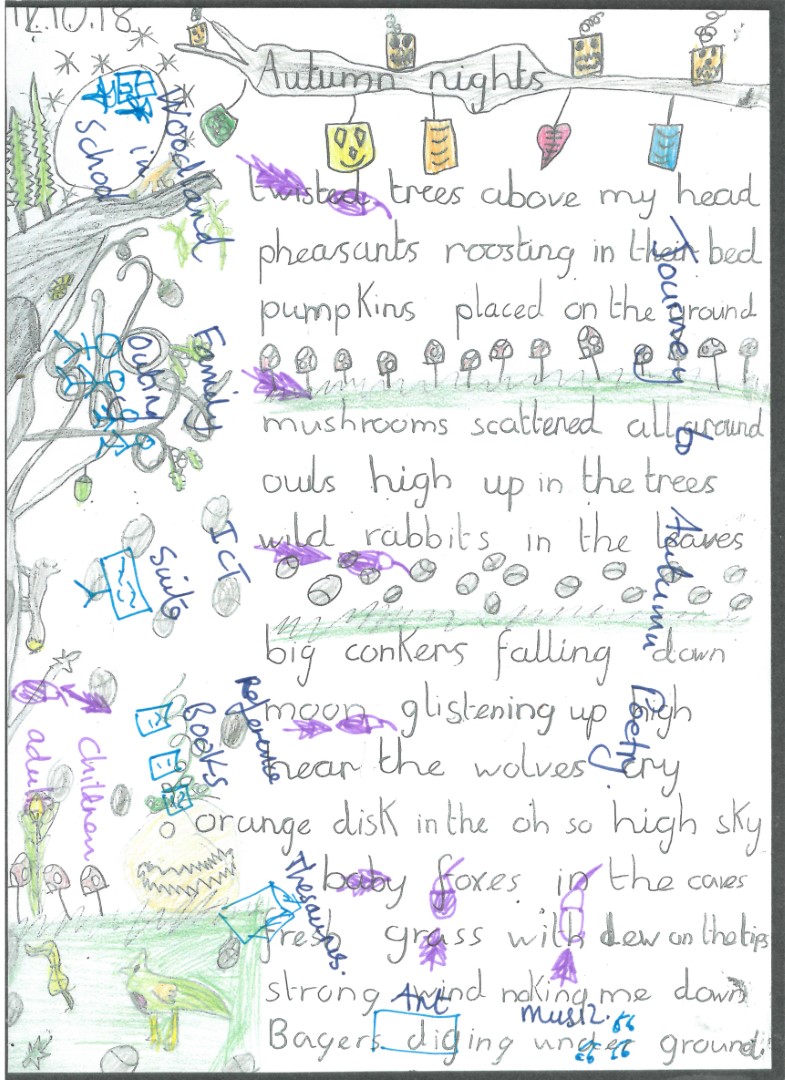 12.10.18
Autumn nights
twisted trees above my head
pheasants roosting in their bed
pumpkins placed on the ground
mushrooms scattered all around
owls high up in the trees
wild rabbits in the leaves
big conkers falling down
moon glistening up high
near the wolves cry
orange disk in the oh so high sky
baby foxes in the caves
fresh grass with dew on the tips
strong wind noking me down
Bagers diging under ground
Woodland
in School
Family
Outing
ICT
Suite
Reference
Books
Thesaurus.
Children
adult
Journey to Autumn Poetry
Art
music.